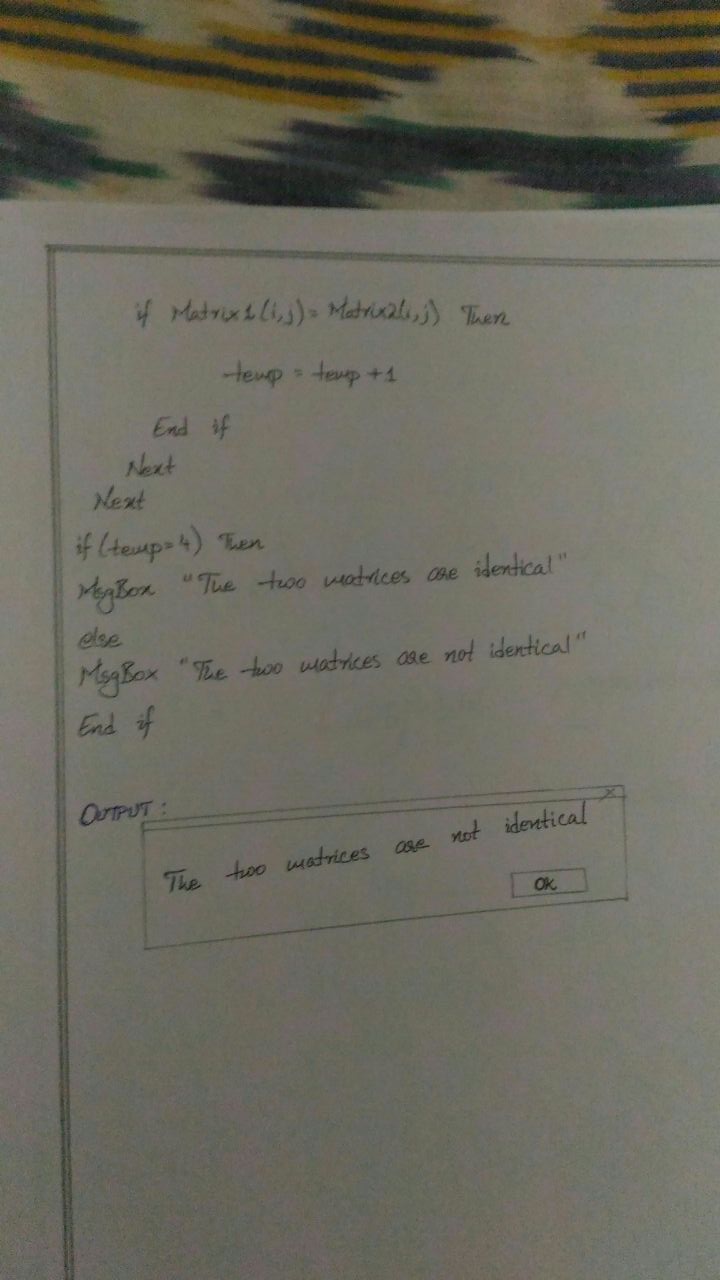 if Matrix1(i,j)= Matrix2(i,j) Then
temp = temp +1
End if
Next
Next
if (temp=4) Then
MsgBox "The two matrices are identical"
else
MsgBox "The two matrices are not identical"
End if
OUTPUT :
x
The two matrices are not identical
OK